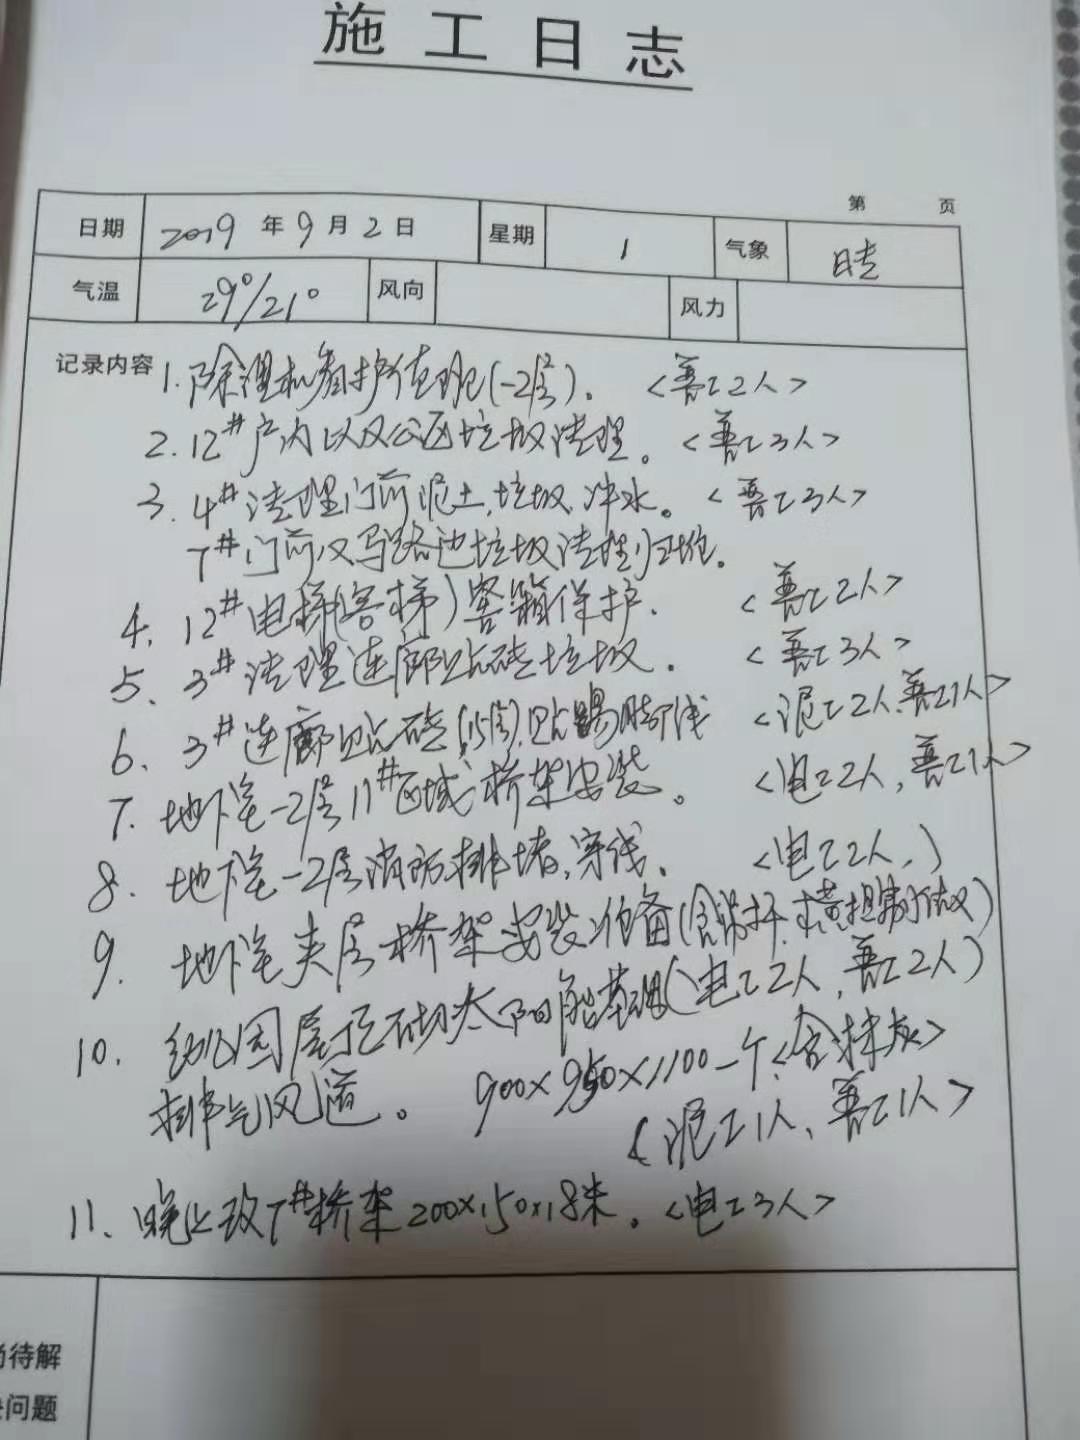 施工日志
第 页
日期 2019 年 9 月 2 日 星期 1 气象 晴
气温 29°/21° 风向 风力
记录内容 1.除湿机看护值班(-2层)。 <普工2人>
2.12#户内以及公区垃圾清理。 <普工3人>
3.4#清理门前泥土,垃圾,冲水。 <普工3人>
7#门前及马路边垃圾清理归堆。
4、12#电梯(客梯)客箱保护. <普工2人>
5、3#清理连廊贴砖垃圾. <普工3人>
6、3#连廊贴砖(15层),贴踢脚线 <泥工2人、普工1人>
7.地下室-2层11#区域桥架安装。 <电工2人,普工1人>
8.地下室-2层消防排堵,穿线. <电工2人,)
9.地下室夹层桥架安装准备(含吊杆、横担制作及)
(电工2人,普工2人)
10.幼儿园屋顶砌太阳能基础
排气风道。 900×950×1100一个<含抹灰>
<泥工1人、普工1人>
11、晚上改7#桥架200×150×18米。<电工3人>
尚待解
决问题